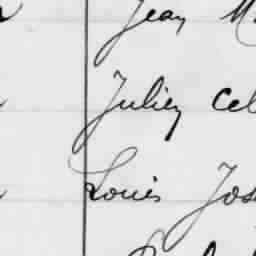 Jean M
Julien Cel
Louis Jos